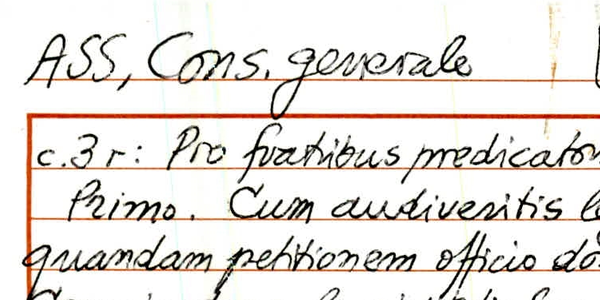 ASS, Cons. generale
c. 3 r: Pro fratribus predicator
Primo. Cum audiveritis
quandam petitionem officio do